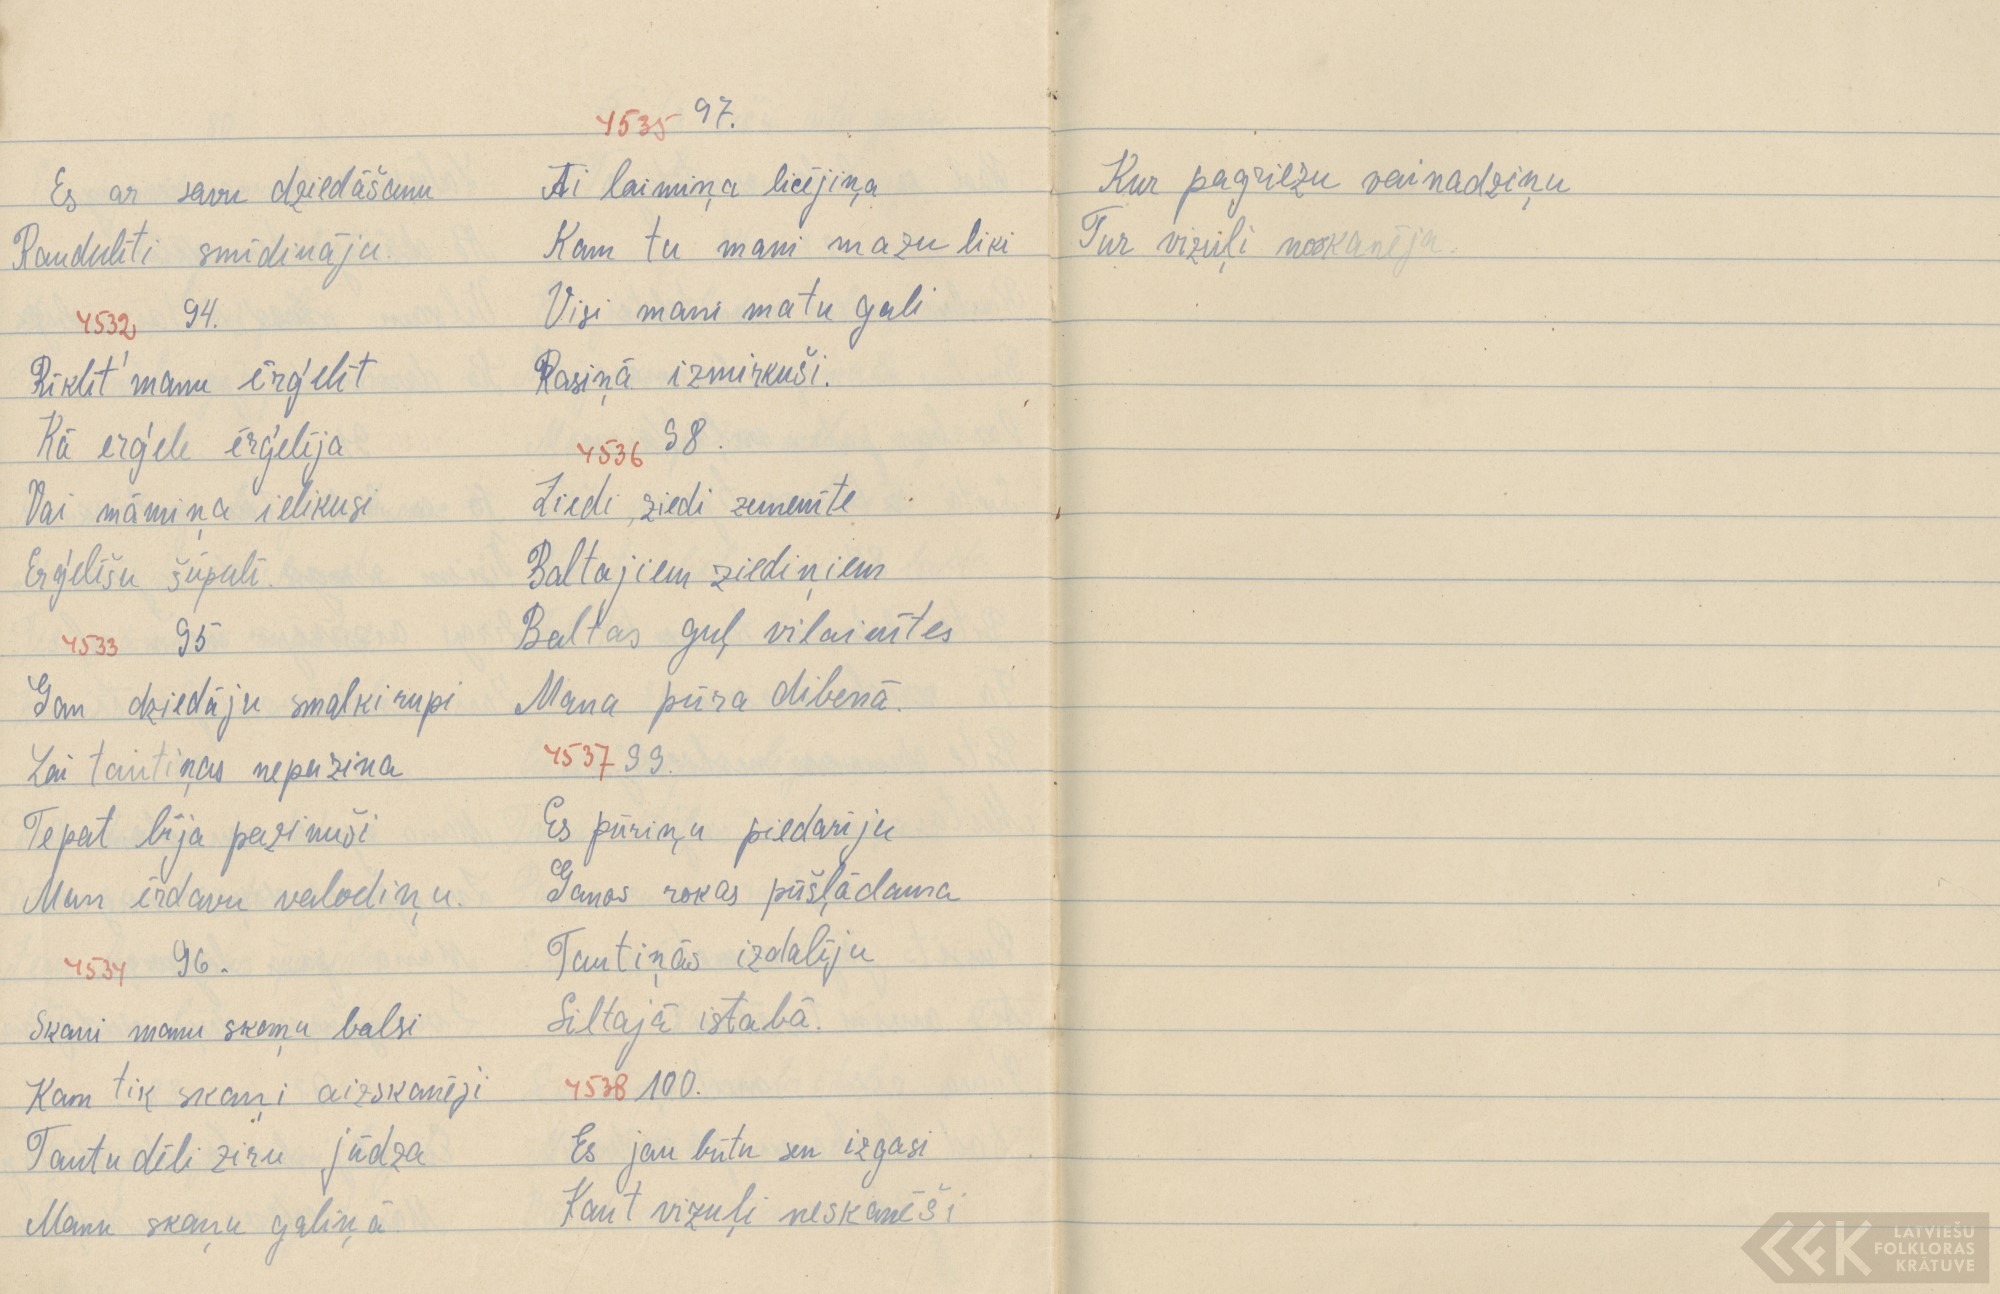 Es ar savu dziedāšanu
Raudulīti smīdināju.
4532 94.
Rīklīt' manu ērģelīt
Kā erģele ērģelīja
Vai māmiņa ielikusi
Erģelīšu šūpulī.
4533 95
Gan dziedāju smalki rupi
Lai tautiņas nepazina
Tepat bija pazinuši
Man ērdavu valodiņu.
4534 96.
Skani manu skaņu balsi
Kam tik skaņi aizskanēji
Tautu dēli zirņu jūdza
Manu skaņu galiņā
4535 97.
Ai laimiņa licējiņa
Kam tu mani mazu liki
Visi mani matu gali
Rasiņā izmirkuši.
4536 98.
Ziedi, ziedi zemenīte
Baltajiem ziediņiem
Baltas guļ vilainītes
Mana pūra dibenā.
4537 99.
Es pūriņu piedarīju
Ganos rokas pūšļādama
Tautiņās izdalīju
Siltajā istabā.
4538 100.
Es jau būtu sen izgasi
Kaut vizuļi neskanēši
Kur pagriezu vainadziņu
Tur vizuļi noskanēja.
LATVIEŠU
FOLKLORAS
KRĀTUVE